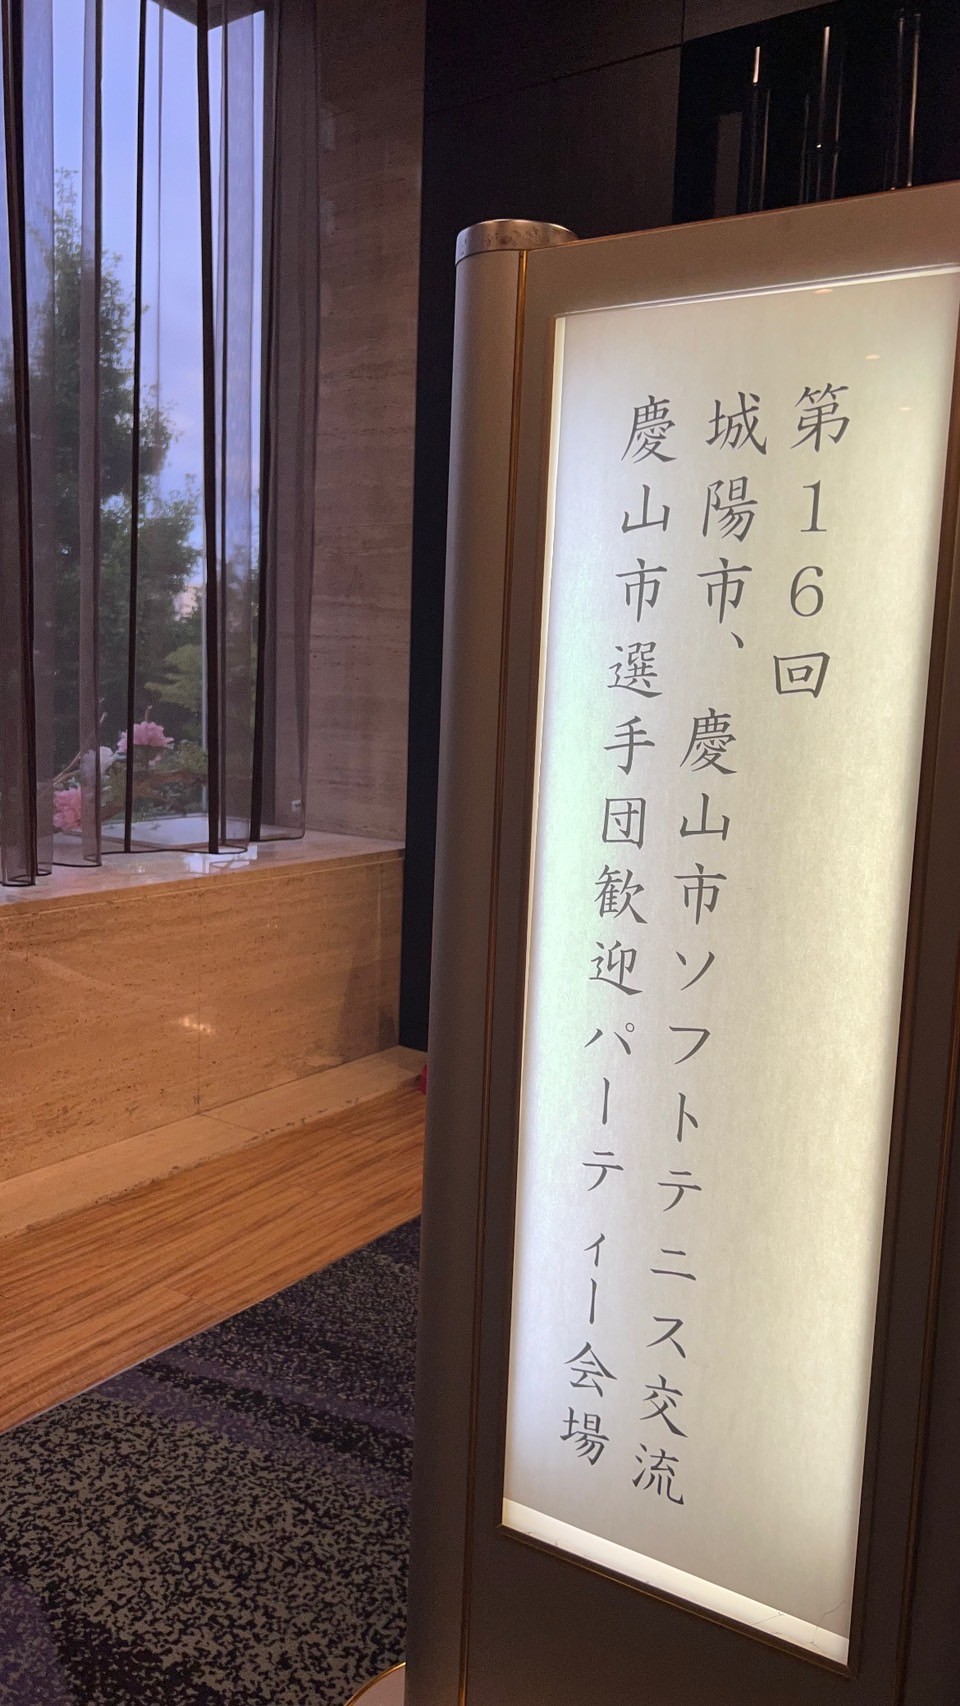 第16回
城陽市、慶山市ソフトテニス交流
慶山市選手団歓迎パーティー会場